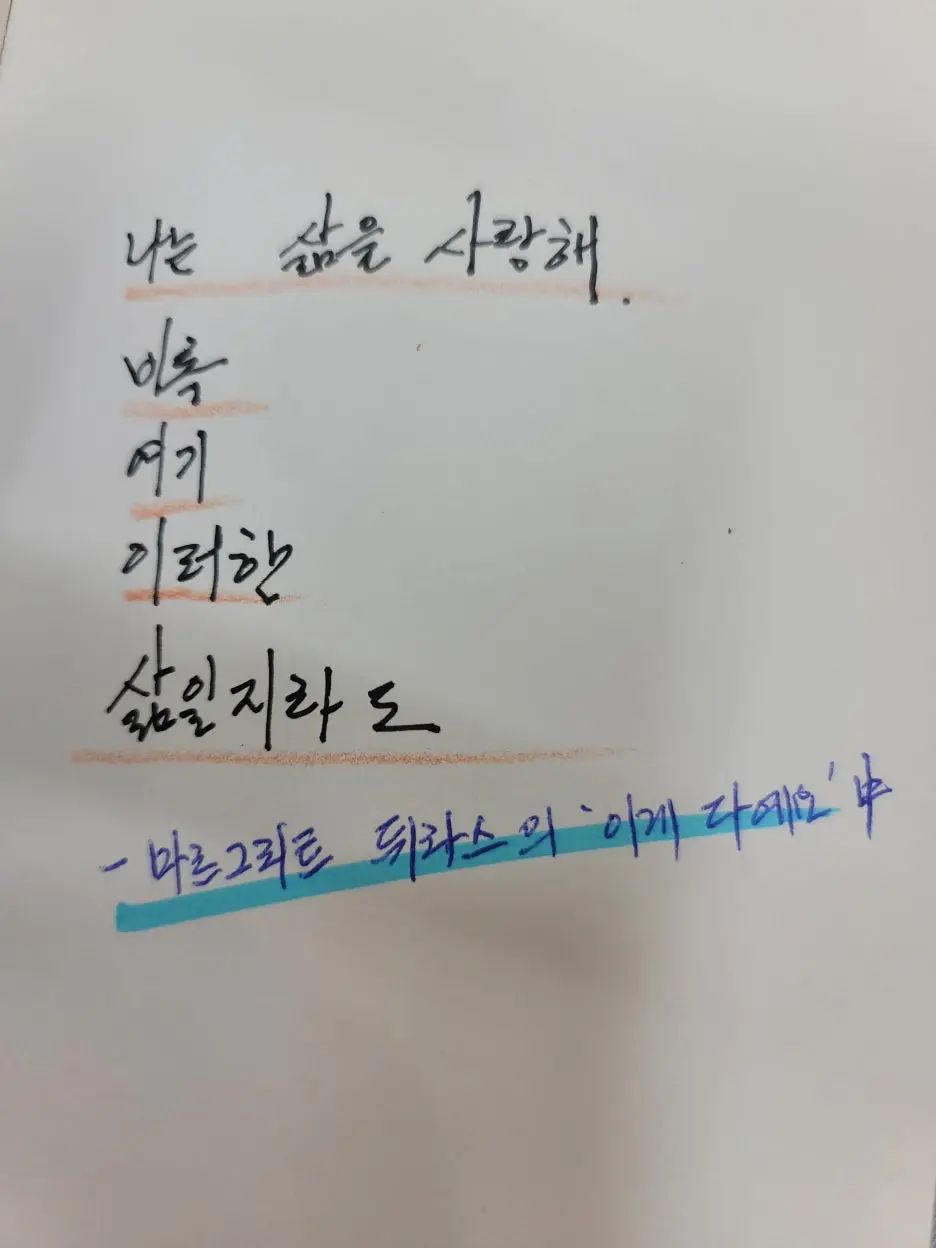 나는 삶을 사랑해.
비록
여기
이러한
삶일지라도
- 마르그리트 뒤라스의 '이게 다예요' 中